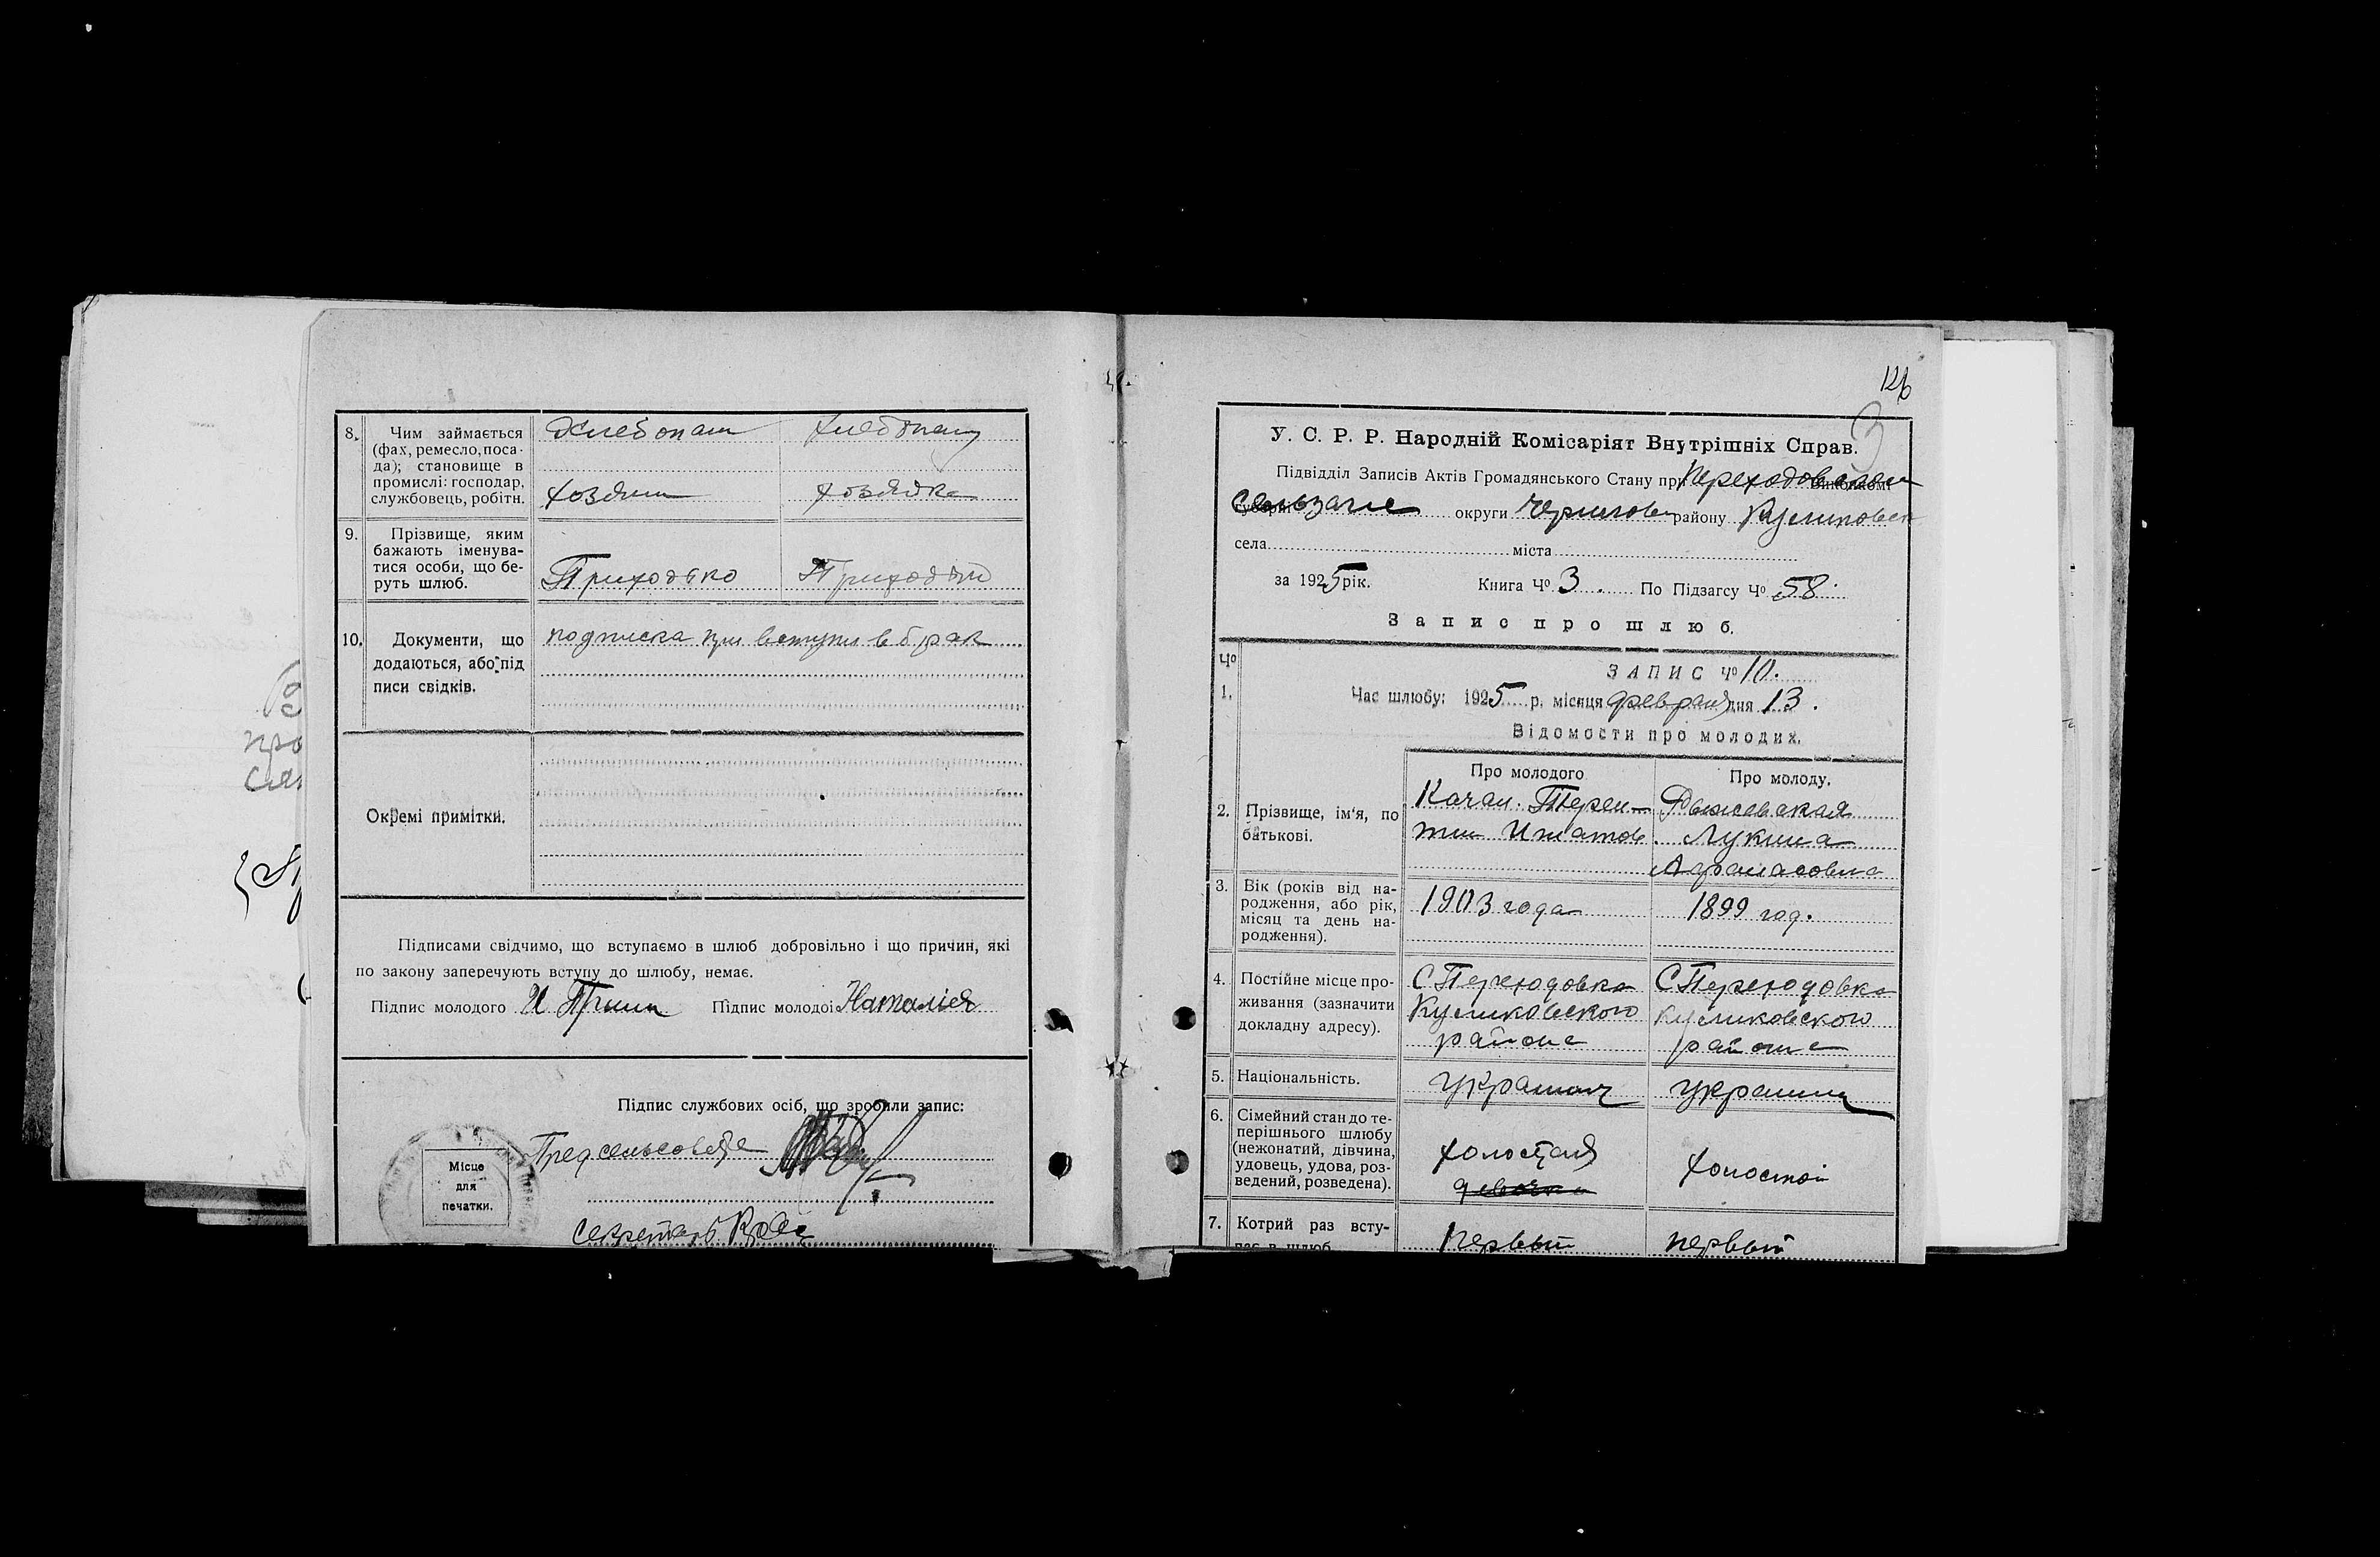 8. Чим займається
(фах, ремесло, поса-
да); становище в
промислі: господар,
службовець, робітн.
Хлебопаш
хозяин хозяйка
9. Прізвище, яким
бажають іменува-
тися особи, що бе-
руть шлюб.
Приходько
10. Документи, що
додаються, або під
писи свідків.
подписка при вступл в брак
Окремі примітки.
Підписами свідчимо, що вступаємо в шлюб добровільно і що причин, які
по закону заперечують вступу до шлюбу, немає.
Підпис молодого И Підпис молодої Наталія
Підпис службових осіб, що зробили запис:
Предсельсовета
Місце
для
печатки.
секретарь
126
3
У. С. Р. Р. Народній Комісаріят Внутрішніх Справ.
Підвідділ Записів Актів Громадянського Стану при Виконкомі
округи Чернигов району Куликовск
села міста
за 1925 рік. Книга Чо 3. По Підзагсу Чо 58.
Запис про шлюб.
Чо ЗАПИС Чо 10.
1. Час шлюбу: 1925 р. місяця февраля дня 13.
Відомости про молодих.
Про молодого Про молоду.
2. Прізвище, ім'я, по
батькові.
Качан Терен-
тий Игнатов Лукина
Афанасовна
3. Вік (років від на-
родження, або рік,
місяц та день на-
родження).
1903 года 1899 год.
4. Постійне місце про-
живання (зазначити
докладну адресу).
С Переходовка С Переходовка
Куликовского Куликовского
района района
5. Національність.
6. Сімейний стан до те-
перішнього шлюбу
(нежонатий, дівчина,
удовець, удова, роз-
ведений, розведена).
холостая холостой
девочка
7. Котрий раз всту-
пає в шлюб
первый первый